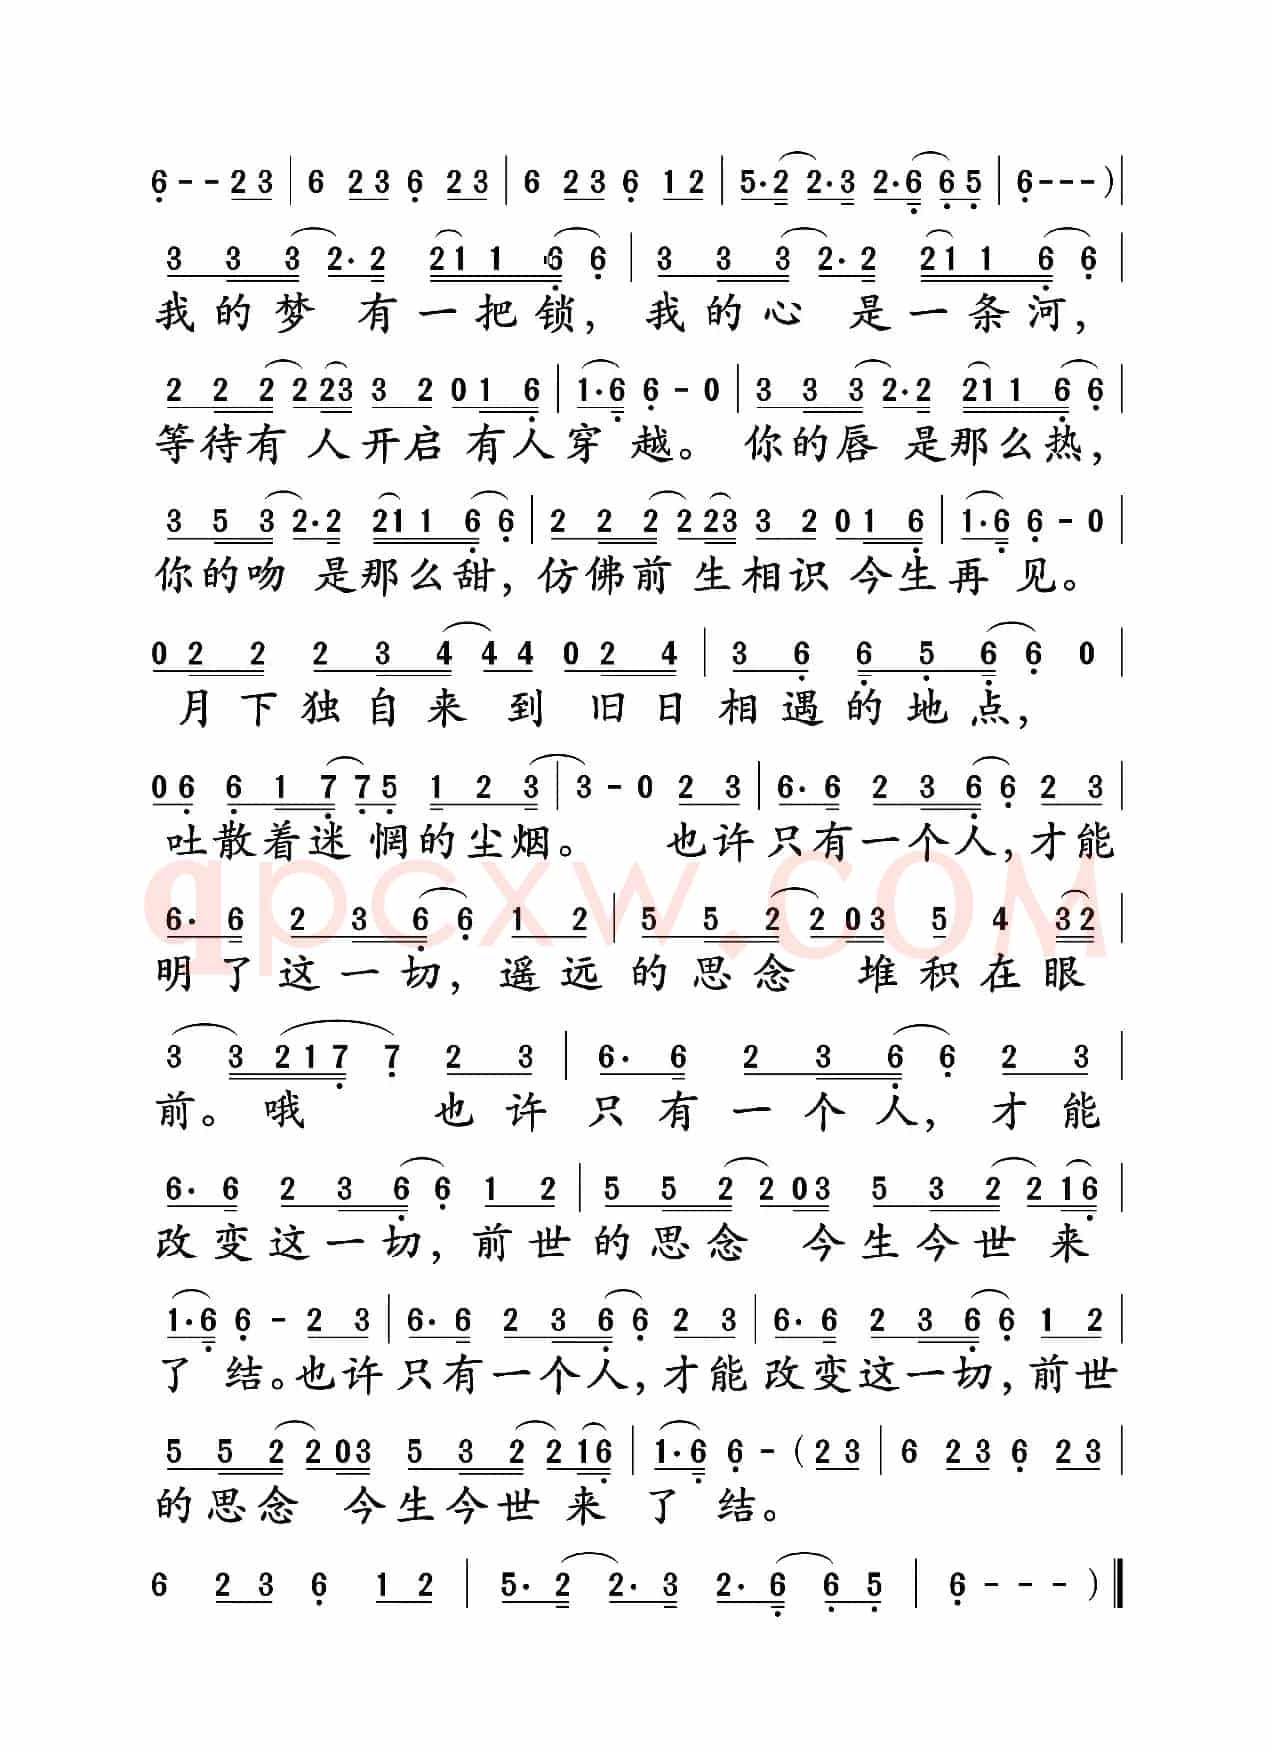 6--23|6 23 6 23|6 23 6 12|5·2 2·3 2·6 65|6---)|
3 3 3 2·2 211 6 6|3 3 3 2·2 211 6 6|
我的梦 有一把锁, 我的心 是一条河,
2 2 2 2 23 3 2 0 1 6|1·6 6-0|3 3 3 2·2 211 6 6|
等待有 人开启 有人穿 越。 你的唇 是那么热,
3 5 3 2·2 211 6 6|2 2 2 2 23 3 2 0 1 6|1·6 6-0|
你的吻 是那么甜, 仿佛前 生相识 今生再 见。
0 2 2 2 3 4 4 4 0 2 4|3 6 6 5 6 6 0|
月下独自来 到 旧日相遇的地点,
0 6 6 1 7 7 5 1 2 3|3-0 2 3|6·6 2 3 6 6 2 3|
吐散着迷 惘的尘烟。 也许只有一个人, 才能
qpcxw.COM
6·6 2 3 6 6 1 2|5 5 2 2 03 5 4 32|
明了这一切, 遥远的思念 堆积在眼
3 3 2 1 7 7 2 3|6·6 2 3 6 6 2 3|
前。 哦 也许只有一个人, 才能
6·6 2 3 6 6 1 2|5 5 2 2 03 5 3 2 2 16|
改变这一切, 前世的思念 今生今世 来
1·6 6-2 3|6·6 2 3 6 6 2 3|6·6 2 3 6 6 1 2|
了 结。也许只有一个人, 才能改变这一切, 前世
5 5 2 2 03 5 3 2 2 16|1·6 6-(23|6 23 6 23|
的思念 今生今世 来 了 结。
6 23 6 12|5·2 2·3 2·6 65|6---)‖